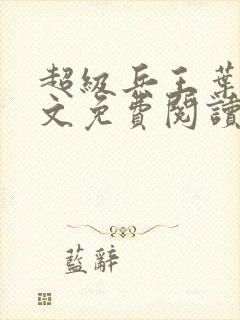 超级兵王葉
文免費閱讀
藍辭